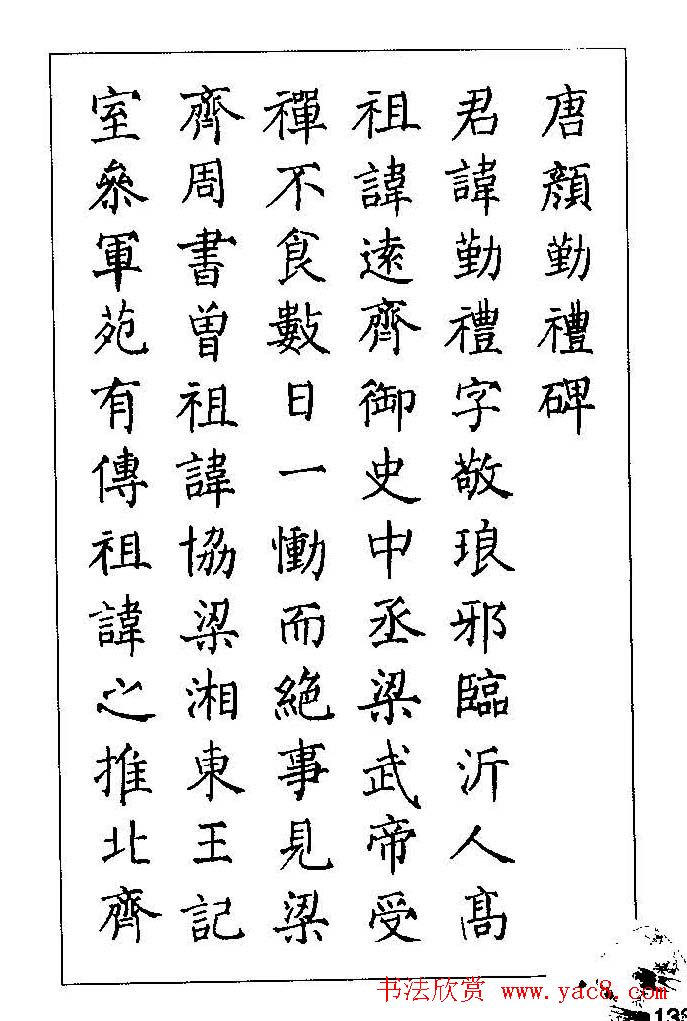 唐顏勤禮碑
君諱勤禮字敬琅邪臨沂人髙
祖諱遠齊御史中丞梁武帝受
禪不食數日一慟而絕事見梁
齊周書曾祖諱協梁湘東王記
室叅軍苑有傳祖諱之推北齊
书法欣赏 www.yac8.com